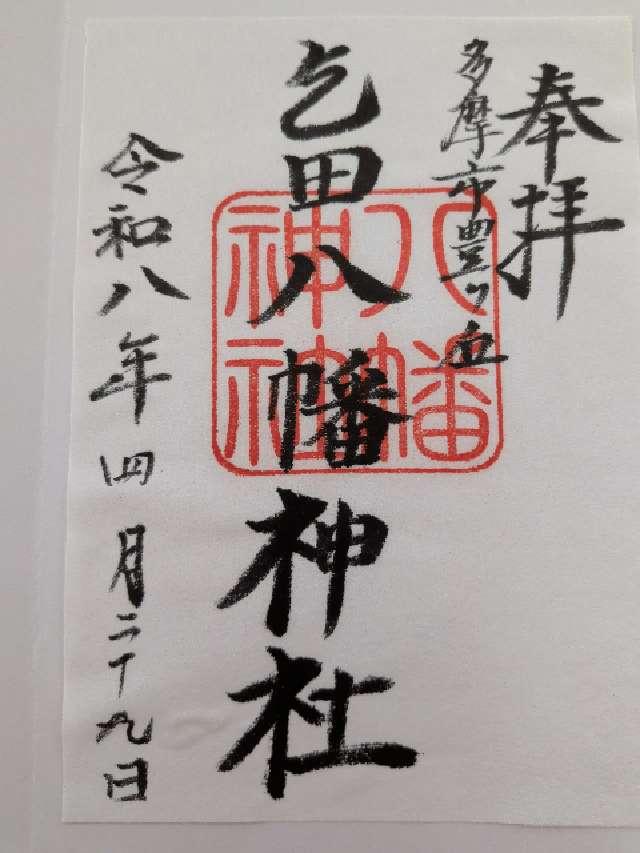 奉拝
多摩市豊ヶ丘
乞田八幡神社
八幡神社
令和八年四月二十九日